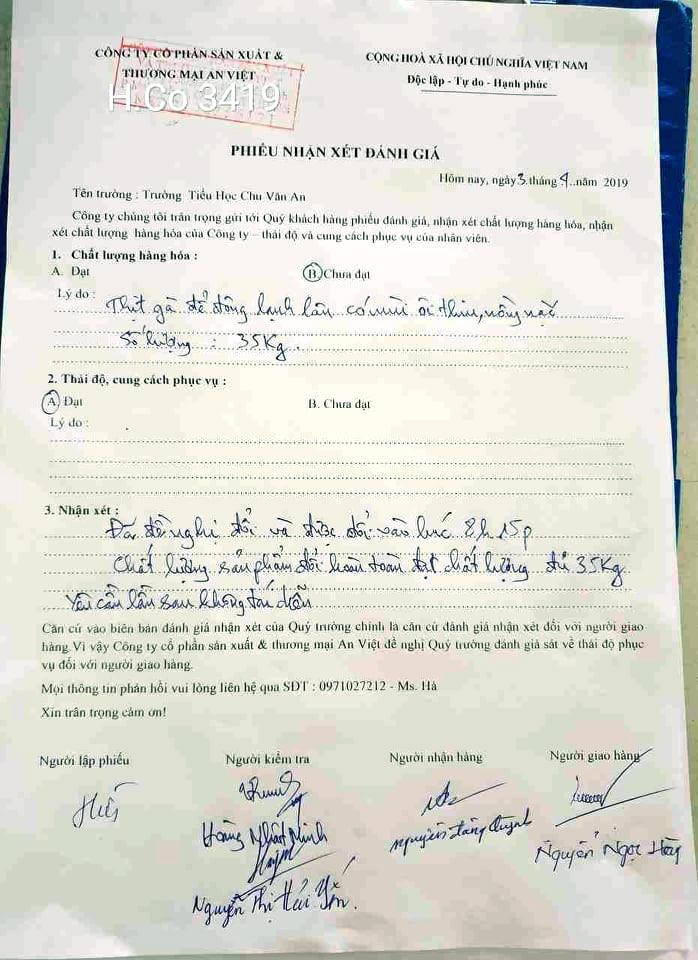 CÔNG TY CỔ PHẦN SẢN XUẤT &
THƯƠNG MẠI AN VIỆT
H.Co 3419
CỘNG HOÀ XÃ HỘI CHỦ NGHĨA VIỆT NAM
Độc lập - Tự do - Hạnh phúc
PHIẾU NHẬN XÉT ĐÁNH GIÁ
Hôm nay, ngày 3. tháng 4..năm 2019
Tên trường : Trường Tiểu Học Chu Văn An
Công ty chúng tôi trân trọng gửi tới Quý khách hàng phiếu đánh giá, nhận xét chất lượng hàng hóa, nhận
xét chất lượng hàng hóa của Công ty – thái độ và cung cách phục vụ của nhân viên.
1. Chất lượng hàng hóa :
A. Đạt
B. Chưa đạt
Lý do : Thịt gà để đông lạnh lâu có mùi ôi thiu, nồng nặc
Số lượng : 35Kg.
2. Thái độ, cung cách phục vụ :
A. Đạt
B. Chưa đạt
Lý do :
3. Nhận xét :
Đã đề nghị đổi và được đổi vào lúc 8h 15p
Chất lượng sản phẩm đổi hoàn toàn đạt chất lượng đủ 35Kg
Yêu cầu lần sau không tái diễn
Căn cứ vào biên bản đánh giá nhận xét của Quý trường chính là căn cứ đánh giá nhận xét đối với người giao
hàng.Vì vậy Công ty cổ phần sản xuất & thương mại An Việt đề nghị Quý trường đánh giá sát về thái độ phục
vụ đối với người giao hàng.
Mọi thông tin phản hồi vui lòng liên hệ qua SĐT : 0971027212 - Ms. Hà
Xin trân trọng cảm ơn!
Người lập phiếu
Người kiểm tra
Người nhận hàng
Người giao hàng
Hoàng Nhật Minh
Nguyễn Đăng Quỳnh
Nguyễn Ngọc
Nguyễn Thị Hải Yến.